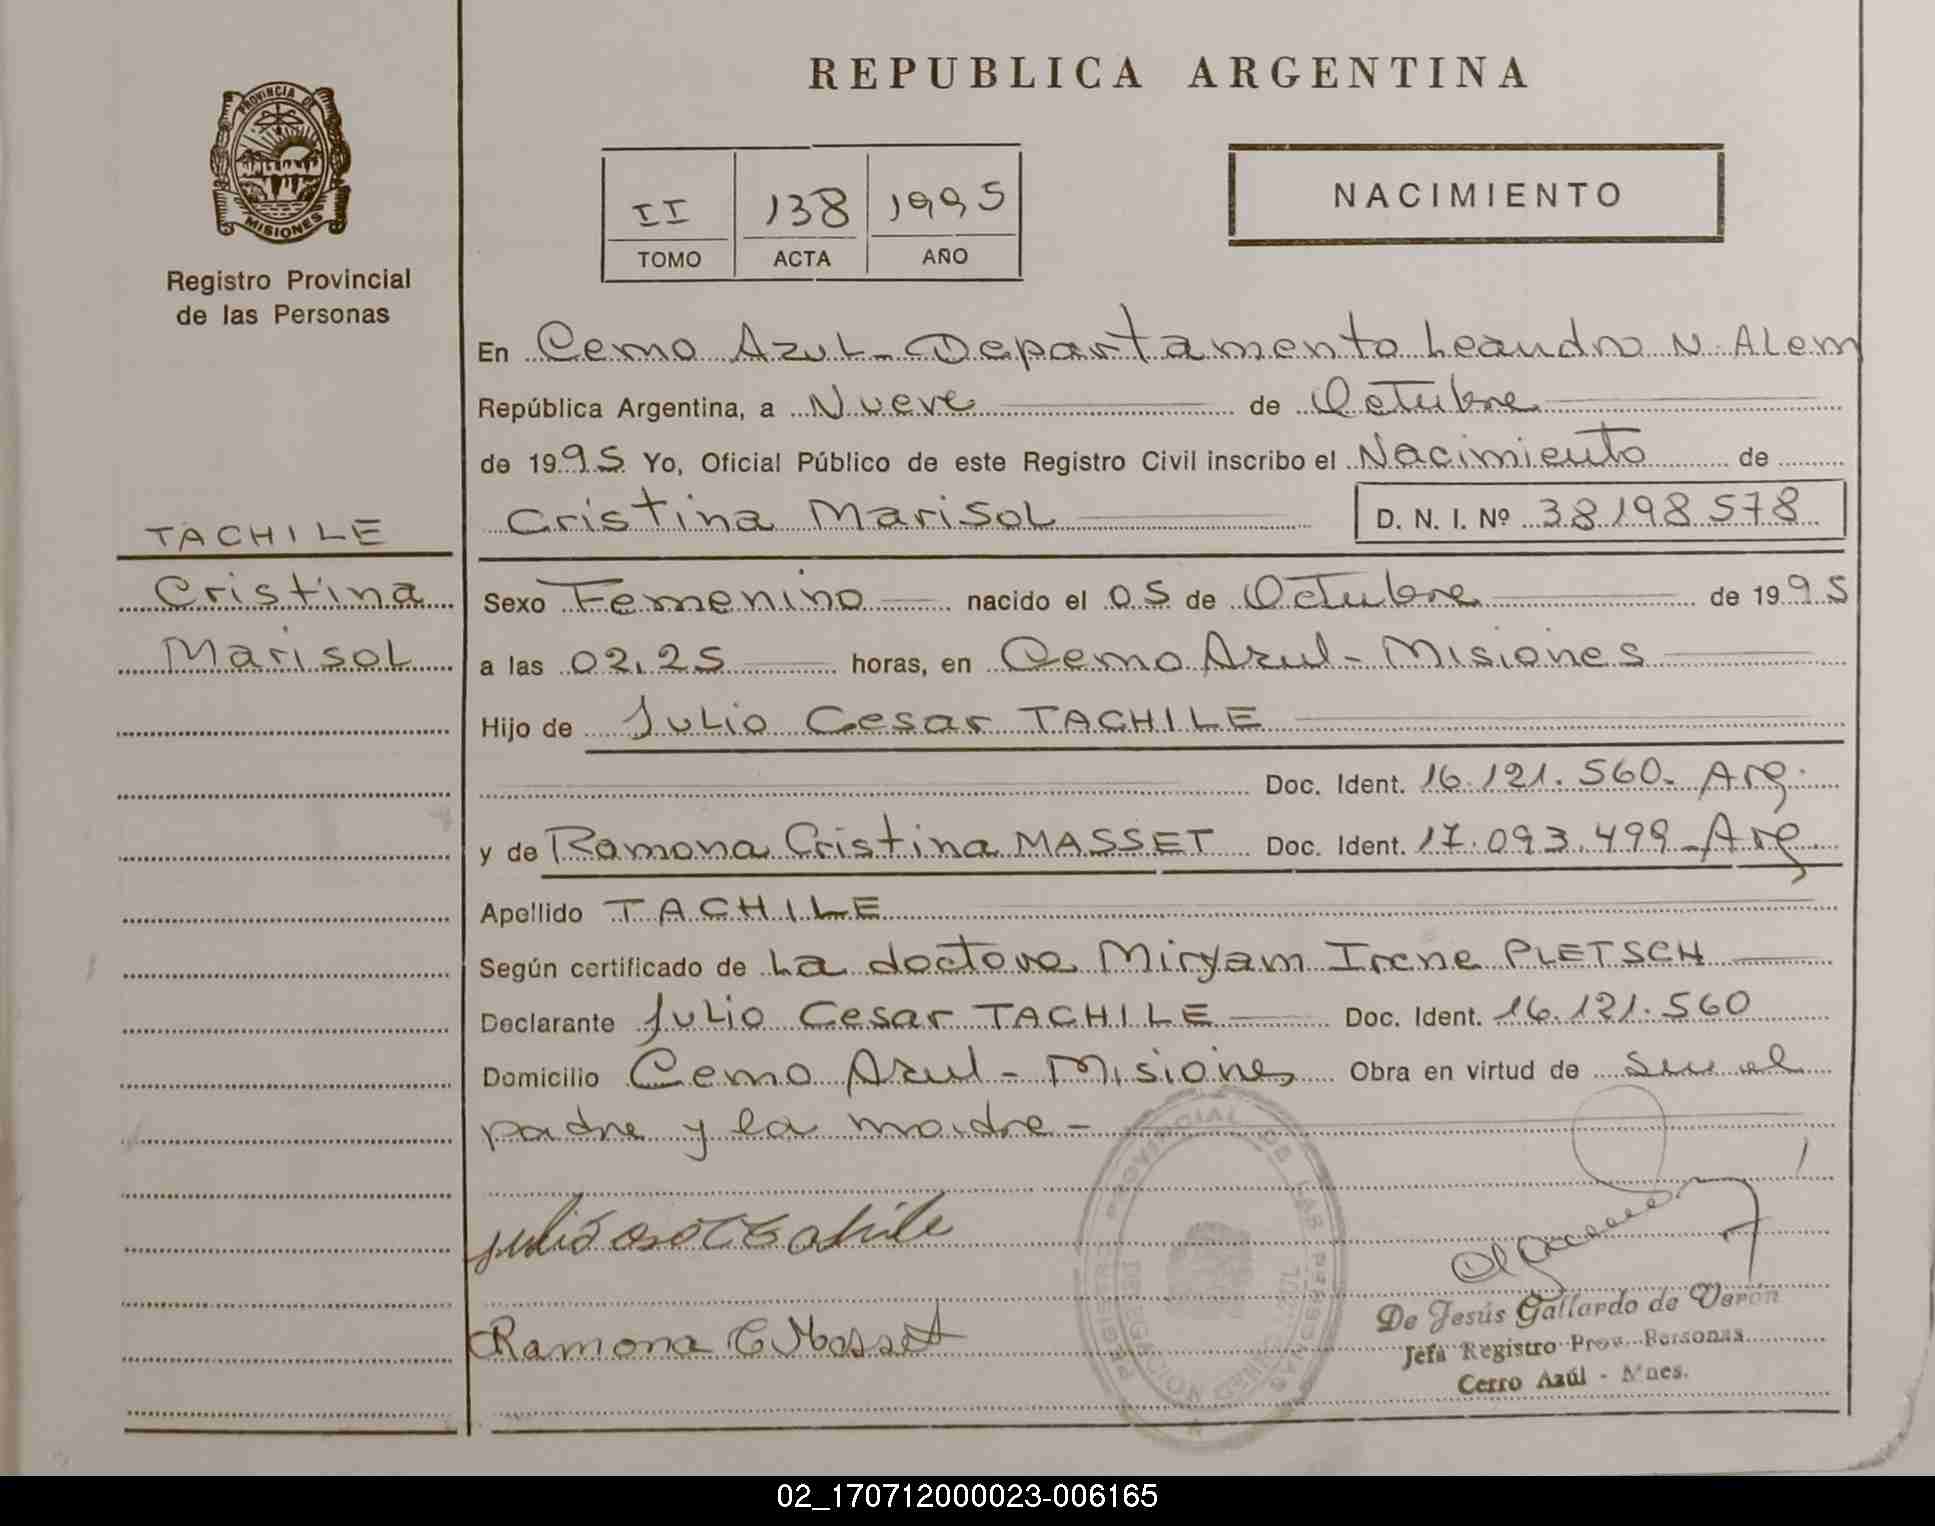 REPUBLICA ARGENTINA
PROVINCIA DE
MISIONES
Registro Provincial
de las Personas
II 138 1995
TOMO ACTA AÑO
NACIMIENTO
En Cerro Azul - Departamento Leandro N. Alem
República Argentina, a Nueve de Octubre
de 1995 Yo, Oficial Público de este Registro Civil inscribo el Nacimiento de
Cristina Marisol D. N. I. Nº 38198578
TACHILE
Cristina
Marisol
Sexo Femenino nacido el 05 de Octubre de 1995
a las 02,25 horas, en Cerro Azul - Misiones
Hijo de Julio Cesar TACHILE
Doc. Ident. 16.121.560 - Arg.
y de Ramona Cristina MASSET Doc. Ident. 17.093.499 - Arg.
Apellido TACHILE
Según certificado de La doctora Miryam Irene PLETSCH
Declarante Julio Cesar TACHILE Doc. Ident. 16.121.560
Domicilio Cerro Azul - Misiones Obra en virtud de ser el
padre y la madre -
Ramona C Masset
REGISTRO PROVINCIAL DE LAS PERSONAS
De Jesús Gallardo de Verón
Jefa Registro Prov. Personas
Cerro Azúl - Mnes.
02_170712000023-006165